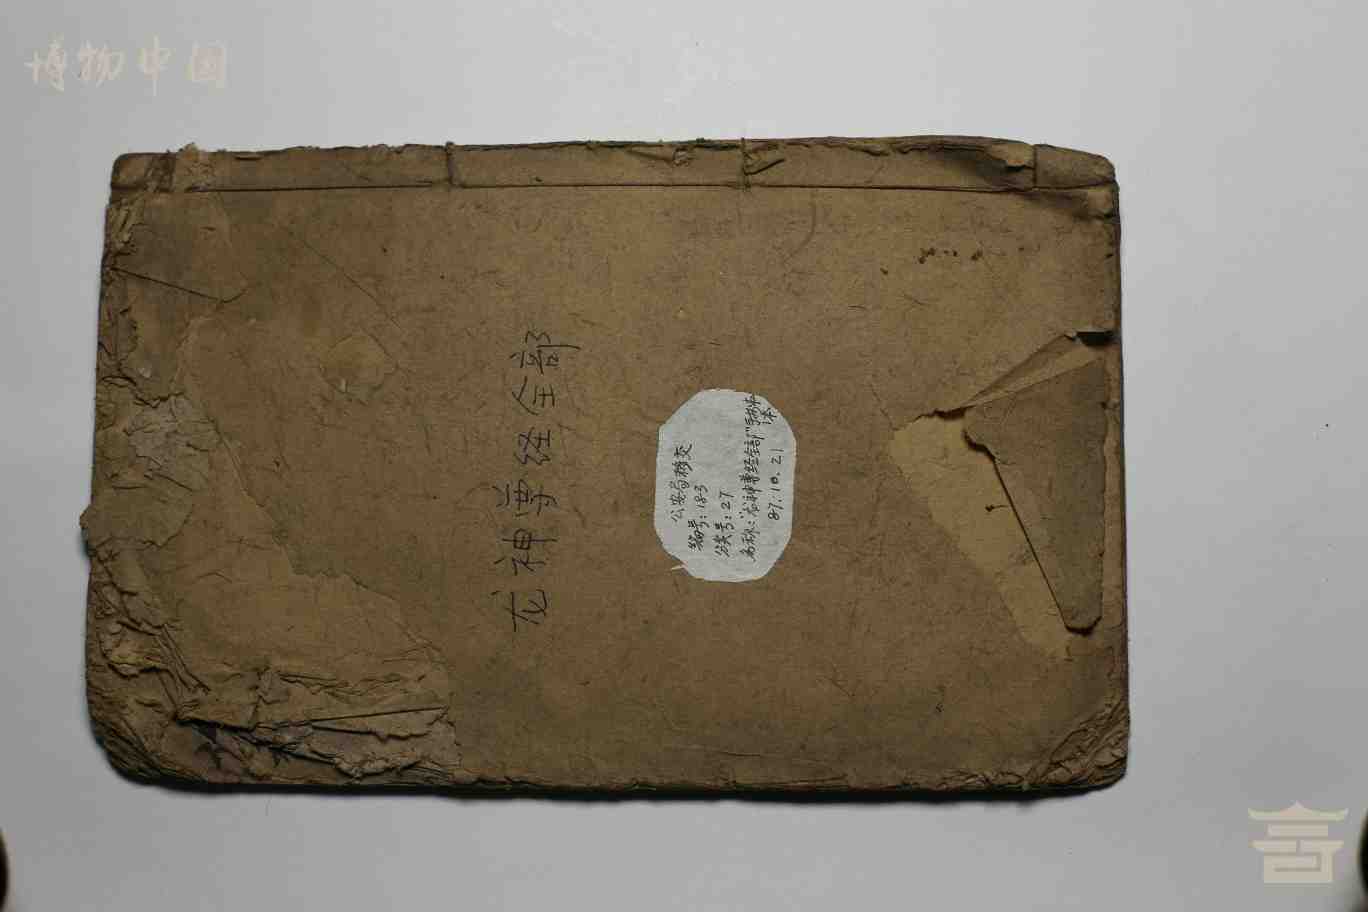 博物中国
龙神尊经全部
公安局移交
编号：183
分类号：27
名称："龙神尊经全部"手抄本
一本
87.10.21